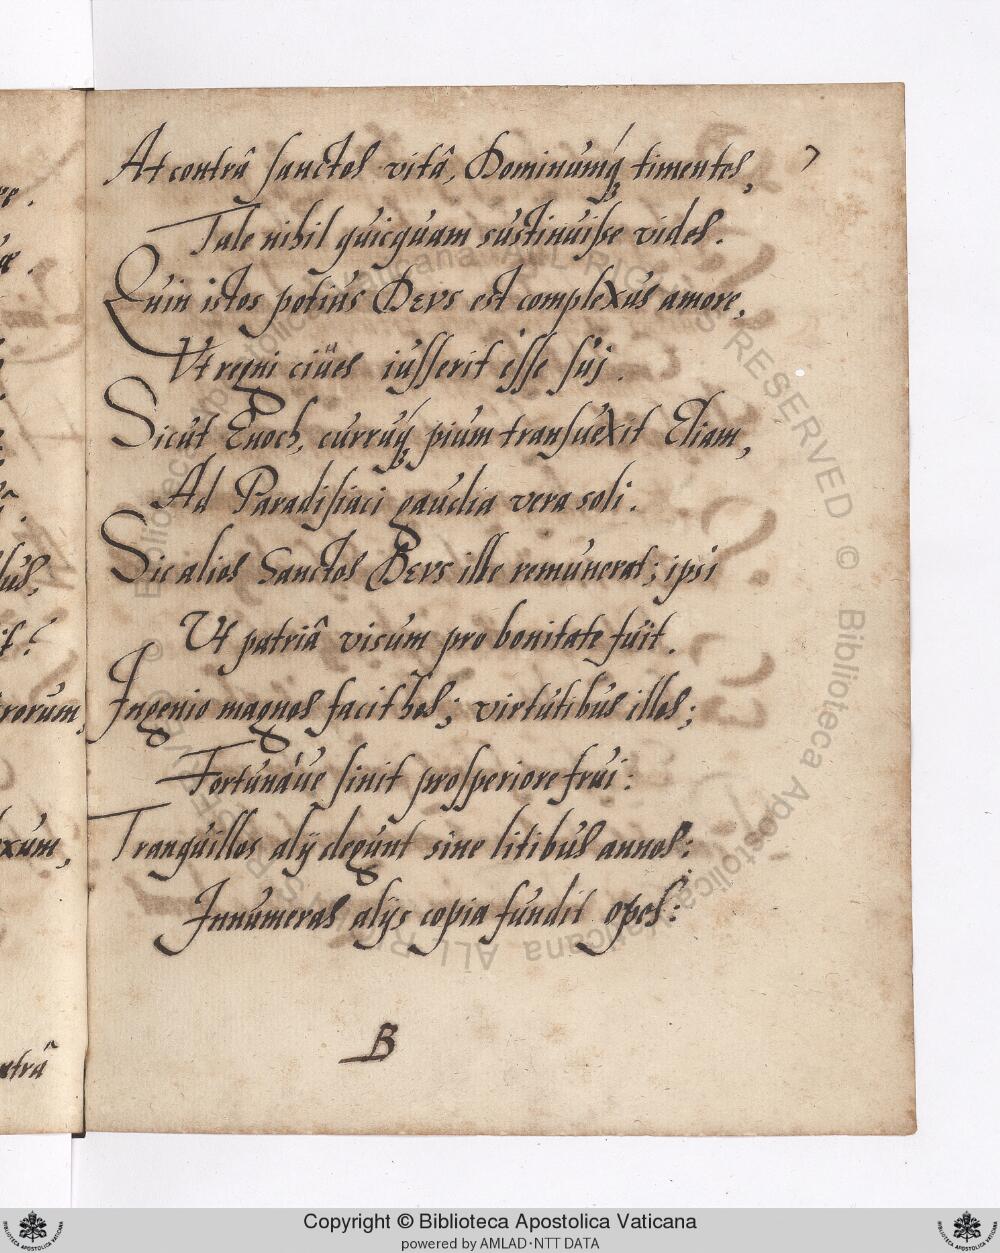 7
At contrâ sanctos vitâ, Dominumq́ꝫ timentes,
Tale nihil quicquam sustinuisse vides.
Quin istos potius Deus est complexus amore,
Ut regni ciues iusserit esse suj.
Sicut Enoch, curruq́ꝫ pium transuexit Eliam,
Ad Paradisiaci gaudia vera soli.
Sic alios Sanctos Deus ille remunerat; ipsi
Ut patriâ visum pro bonitate fuit.
Ingenio magnos facit hos; virtutibus illos;
Fortunáue sinit prosperiore frui:
Tranquillos alij degunt sine litibus annos:
Innumeras alijs copia fundit opes:
B
re.
æ.
lus,
it?
rorum,
xum,
ntrâ
Copyright © Biblioteca Apostolica Vaticana
powered by AMLAD·NTT DATA
© Biblioteca Apostolica Vaticana ALL RIGHTS RESERVED
© Biblioteca Apostolica Vaticana ALL RIGHTS RESERVED
BIBLIOTECA APOSTOLICA VATICANA
BIBLIOTECA APOSTOLICA VATICANA